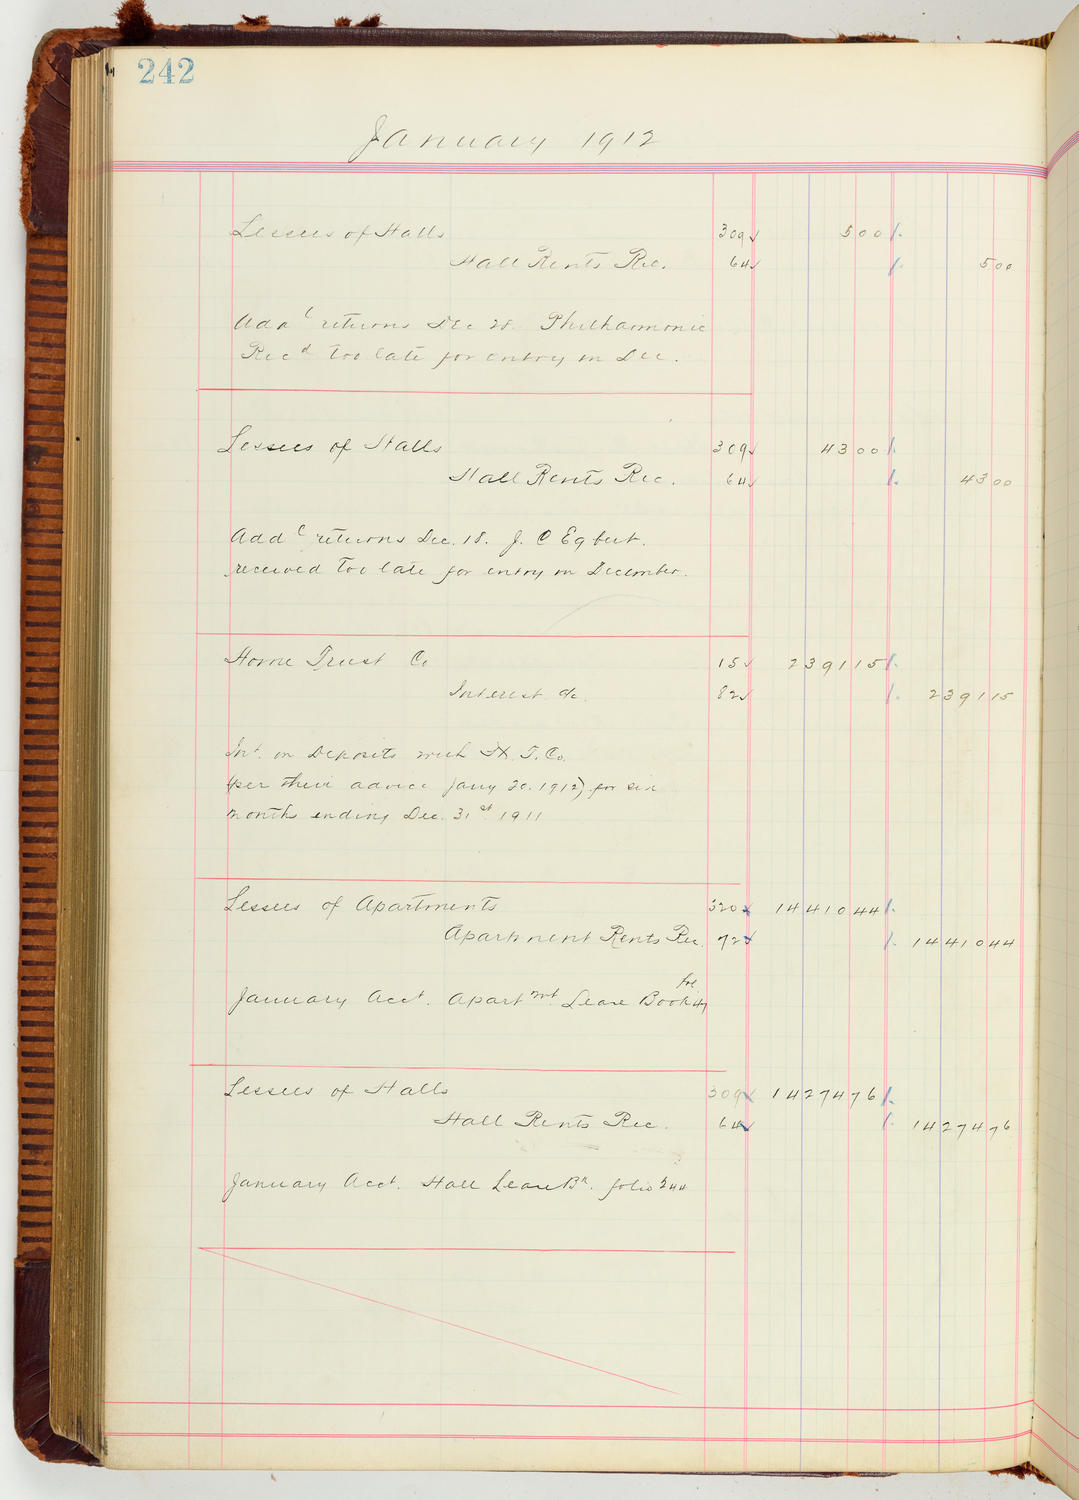 242
January 1912
Lessees of Halls 309 ✓ 500
Hall Rents Rec. 64 ✓ 500
Add l returns Dec 28. Philharmonic
Rec d too late for entry in Dec.
Lessees of Halls 309 ✓ 4300
Hall Rents Rec. 64 ✓ 4300
Add l returns Dec. 18. J. C Egbert.
received too late for entry in December.
Home Trust Co 15 ✓ 239115
Interest a/c 82 ✓ 239115
Int. on Deposits with H. T. Co.
(per their advice Jany 20. 1912) for six
months ending Dec. 31 st 1911
Lessees of Apartments 320 1441044
Apartment Rents Rec. 72 1441044
January Acct. Apart mt Lease Book fol 47
Lessees of Halls 309 1427476
Hall Rents Rec. 64 1427476
January Acct. Hall Lease Bk. folio 244